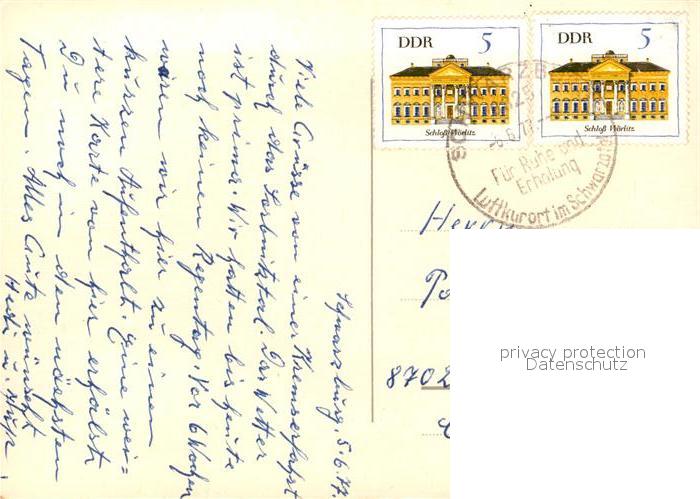 Schwarzburg, 5.6.77.
Viele Grüsse von einer Kremserfahrt
durch das Sorbitztal. Das Wetter
ist prima. Wir hatten bis heute
noch keinen Regentag. Vor 6 Wochen
waren wir hier zu einem
kurzen Aufenthalt. Eine wei=
tere Karte von hier erhälst
Du noch in den nächsten
Tagen. Alles Gute wünscht
Hedi u.
DDR 5
Schloß Wörlitz
DDR 5
Schloß Wörlitz
-6.6.77-
Für Ruhe und
Erholung
Luftkurort im Schwarzatal
Herrn
8702
privacy protection
Datenschutz